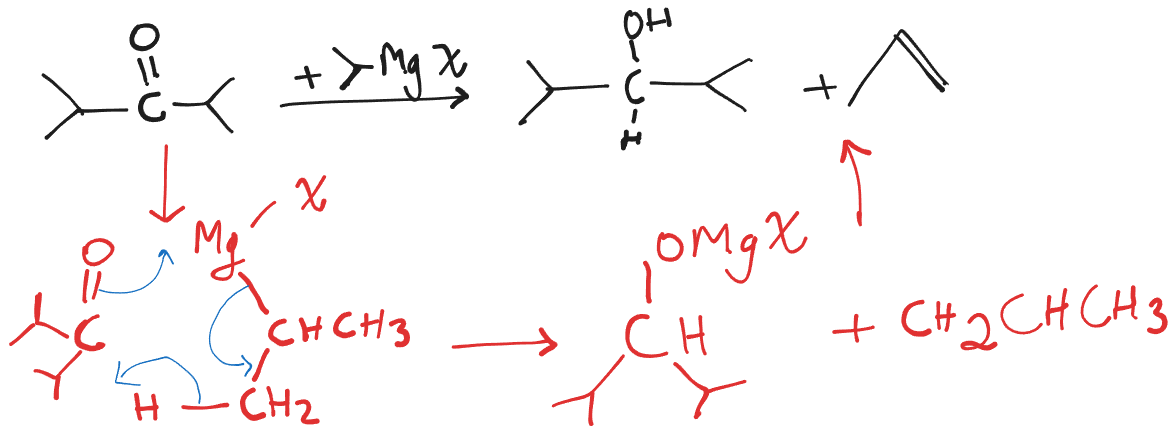 O
C + Mg X
OH
C
H
+
Mg X
O
C
CHCH3
H CH2
OMgX
CH
+ CH2CHCH3